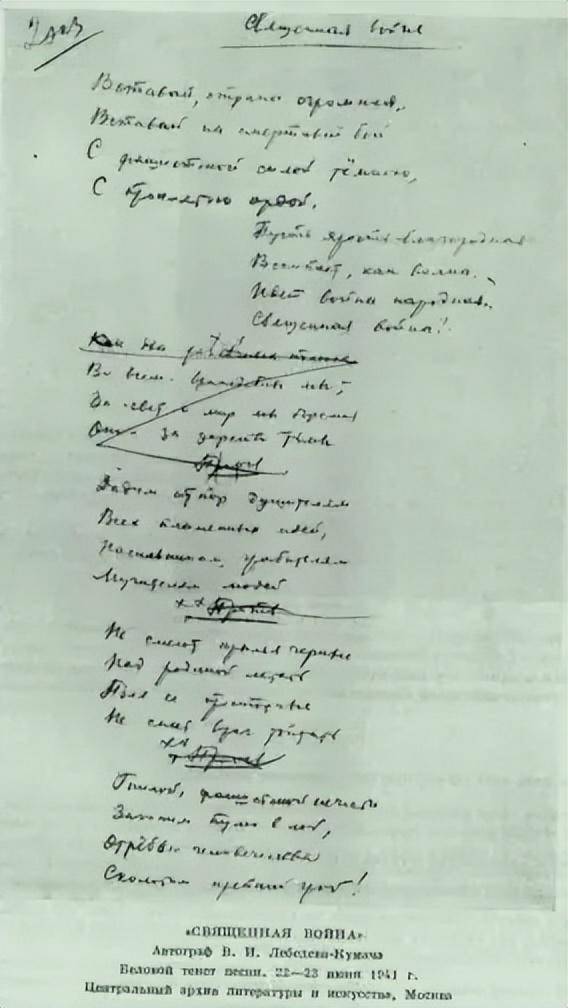 2 экз
Священная война
Вставай, страна огромная,
Вставай на смертный бой
С фашистской силой тёмною,
С проклятою ордой.
Пусть ярость благородная
Вскипает, как волна.
Идёт война народная,
Священная война!
Как два различных полюса
Во всем враждебны мы;
За свет и мир мы боремся
Они за царство тьмы
Припев
Дадим отпор душителям
Всех пламенных идей,
Насильникам, грабителям
Мучителям людей
Припев
Не смеют крылья черные
Над родиной летать
Поля ее просторные
Не смеет враг топтать
Припев
Гнилой фашистской нечисти
Загоним пулю в лоб,
Отребью человечества
Сколотим крепкий гроб!
«СВЯЩЕННАЯ ВОЙНА»
Автограф В. И. Лебедева-Кумача
Беловой текст песни. 22—23 июня 1941 г.
Центральный архив литературы и искусства, Москва